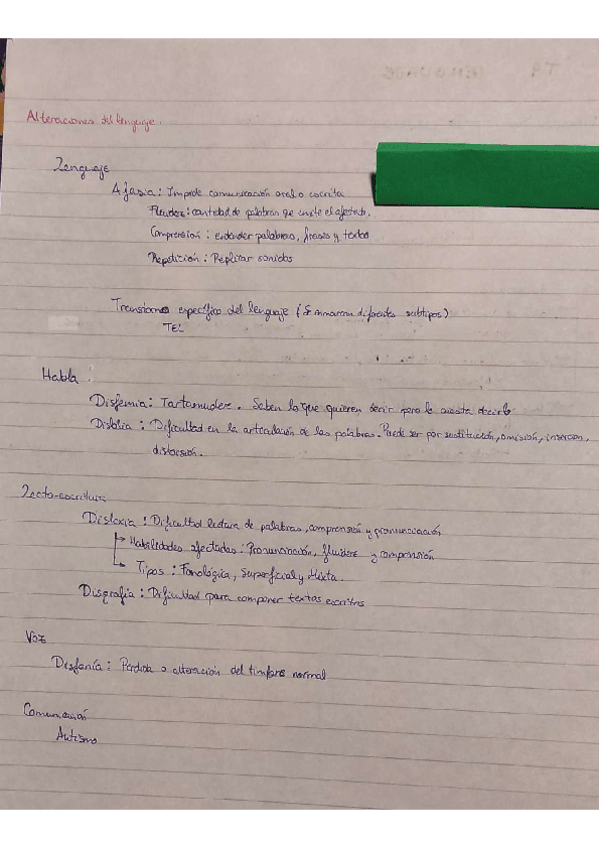 Alteraciones del lenguaje.
Lenguaje
Afasia: Impide comunicación oral o escrita
Fluidez: cantidad de palabras que emite el afectado.
Comprensión: entender palabras, frases y textos
Repetición: Replicar sonidos
Transtorno específico del lenguaje (Se enmarcan diferentes subtipos)
TEL
Habla.
Disfemia: Tartamudez. Saben lo que quieren decir pero le cuesta decirlo
Dislalia: Dificultad en la articulación de las palabras. Puede ser por sustitución, omisión, inserción,
distorsión.
Lecto-escritura
Dislexia: Dificultad lectura de palabras, comprensión y pronunciación
Habilidades afectadas: Pronunciación, fluidez y comprensión
Tipos: Fonológica, Superficial y Mixta.
Disgrafia: Dificultad para componer textos escritos
Voz
Disfonía: Pérdida o alteración del timbre normal
Comunicación
Autismo